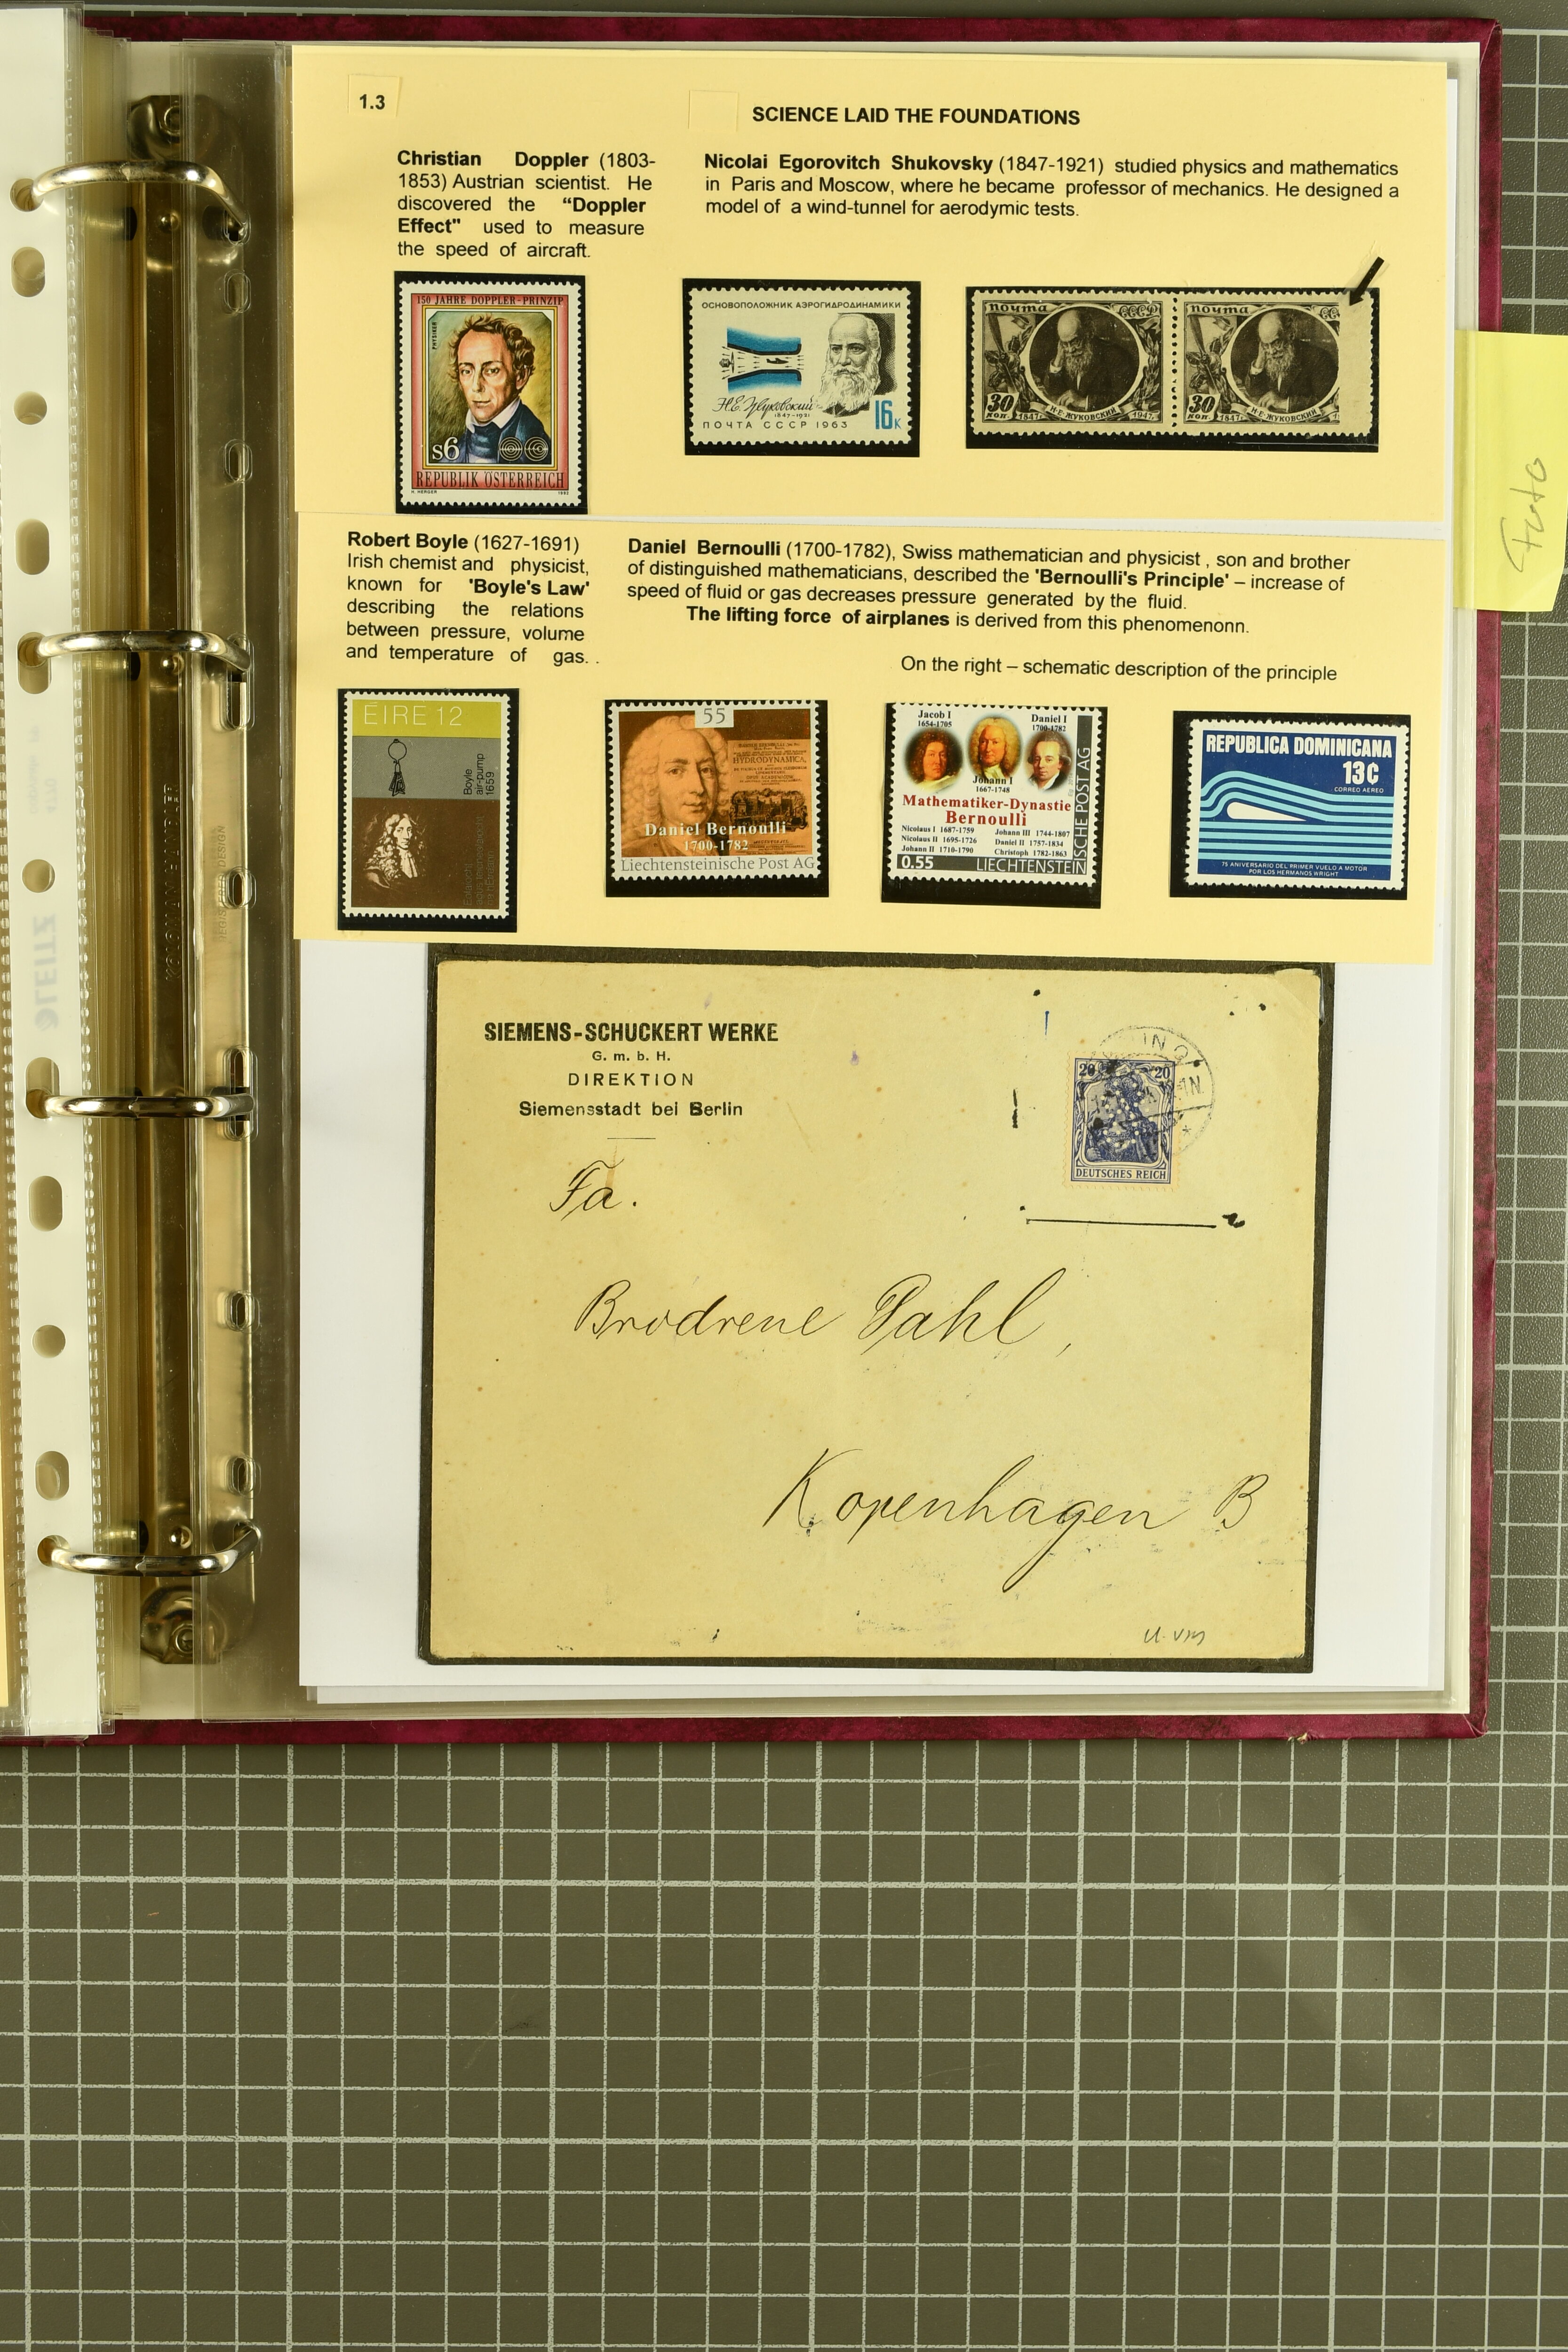 1.3
SCIENCE LAID THE FOUNDATIONS
Christian Doppler (1803-
1853) Austrian scientist. He
discovered the “Doppler
Effect" used to measure
the speed of aircraft.
Nicolai Egorovitch Shukovsky (1847-1921) studied physics and mathematics
in Paris and Moscow, where he became professor of mechanics. He designed a
model of a wind-tunnel for aerodymic tests.
150 JAHRE DOPPLER-PRINZIP
PHYSIKER
s6
REPUBLIK ÖSTERREICH
H. HERGER 1992
ОСНОВОПОЛОЖНИК АЭРОГИДРОДИНАМИКИ
Н.Е.Жуковский
1847-1921
16к
ПОЧТА СССР 1963
почта СССР
30
коп.
1847 Н·Е·ЖУКОВСКИЙ 1947
почта СС
30
коп.
1847 Н·Е·ЖУКОВСКИЙ 1
Foto
Robert Boyle (1627-1691)
Irish chemist and physicist,
known for 'Boyle's Law'
describing the relations
between pressure, volume
and temperature of gas. .
Daniel Bernoulli (1700-1782), Swiss mathematician and physicist , son and brother
of distinguished mathematicians, described the 'Bernoulli's Principle' – increase of
speed of fluid or gas decreases pressure generated by the fluid.
The lifting force of airplanes is derived from this phenomenonn.
On the right – schematic description of the principle
ÉIRE 12
Boyle
air-pump
1659
55
HYDRODYNAMICA,
Daniel Bernoulli
1700-1782
Liechtensteinische Post AG
Jacob I
1654-1705
Daniel I
1700-1782
Johann I
1667-1748
Mathematiker-Dynastie
Bernoulli
Nicolaus I 1687-1759
Nicolaus II 1695-1726
Johann II 1710-1790
Johann III 1744-1807
Daniel II 1757-1834
Christoph 1782-1863
0.55 LIECHTENSTEINISCHE POST AG
REPUBLICA DOMINICANA
13¢
CORREO AEREO
75 ANIVERSARIO DEL PRIMER VUELO A MOTOR
POR LOS HERMANOS WRIGHT
SIEMENS-SCHUCKERT WERKE
G. m. b. H.
DIREKTION
Siemensstadt bei Berlin
20 20
DEUTSCHES REICH
Fa.
Brodrene Dahl,
Kopenhagen B
LEITZ